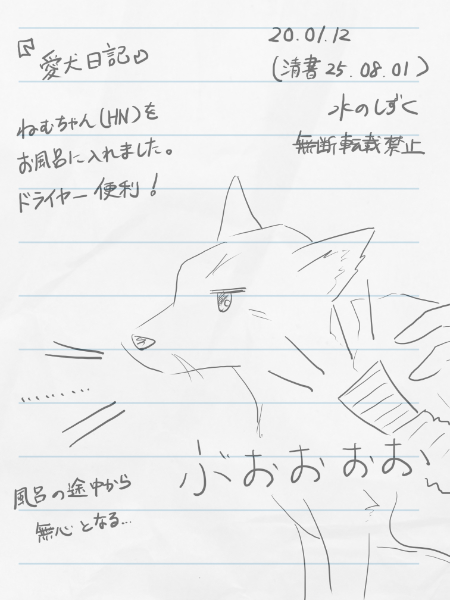 『愛犬日記』
20.01.12
(清書25.08.01)
水のしずく
無断転載禁止
ねむちゃん(HN)を
お風呂に入れました。
ドライヤー便利!
........
ぶおおおお、
風呂の途中から
無心となる...